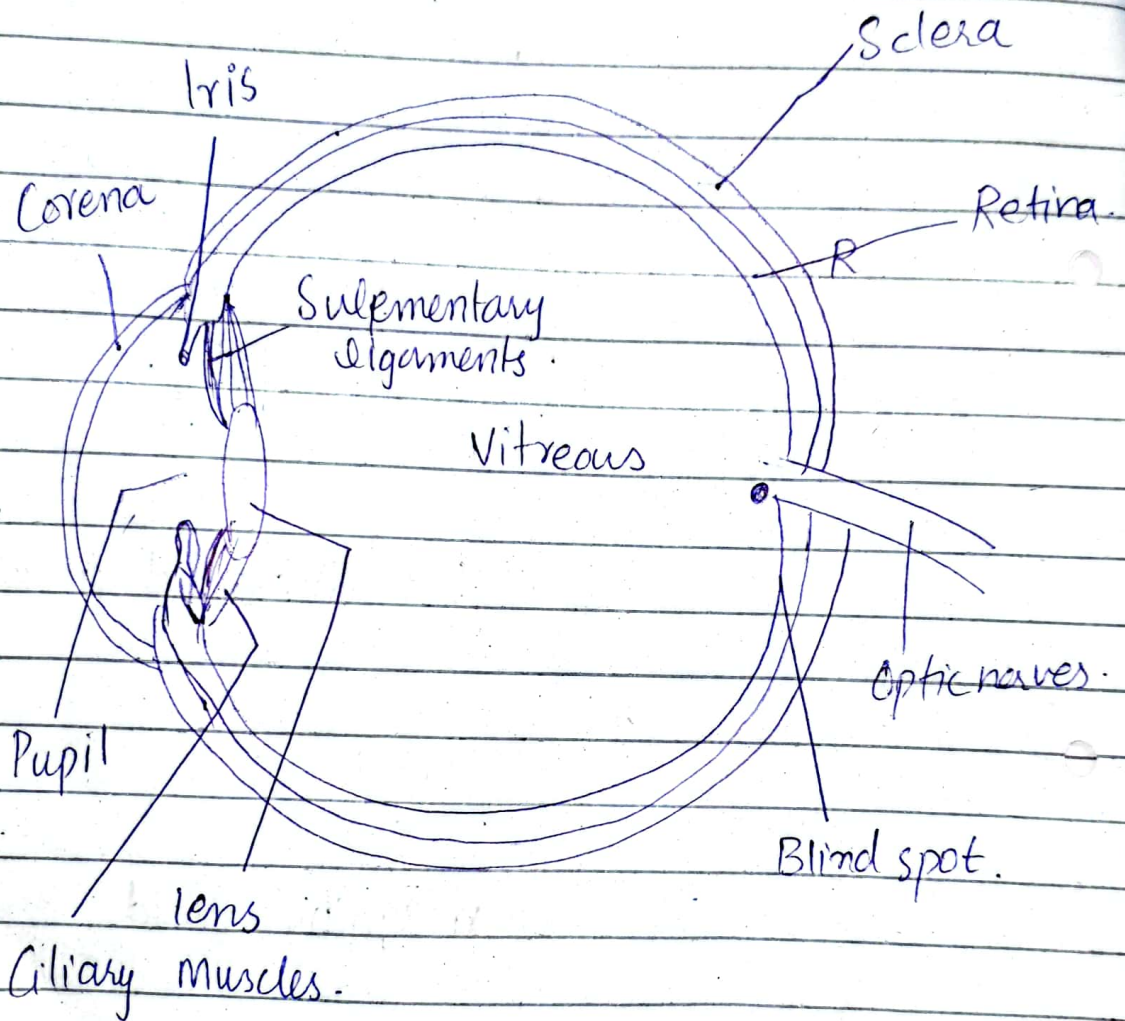 Sclera
Iris
Corena
Retina.
R
Sulpmentary
ligaments.
Vitreous
Optic narves.
Pupil
Blind spot.
lens
Ciliary Muscles.